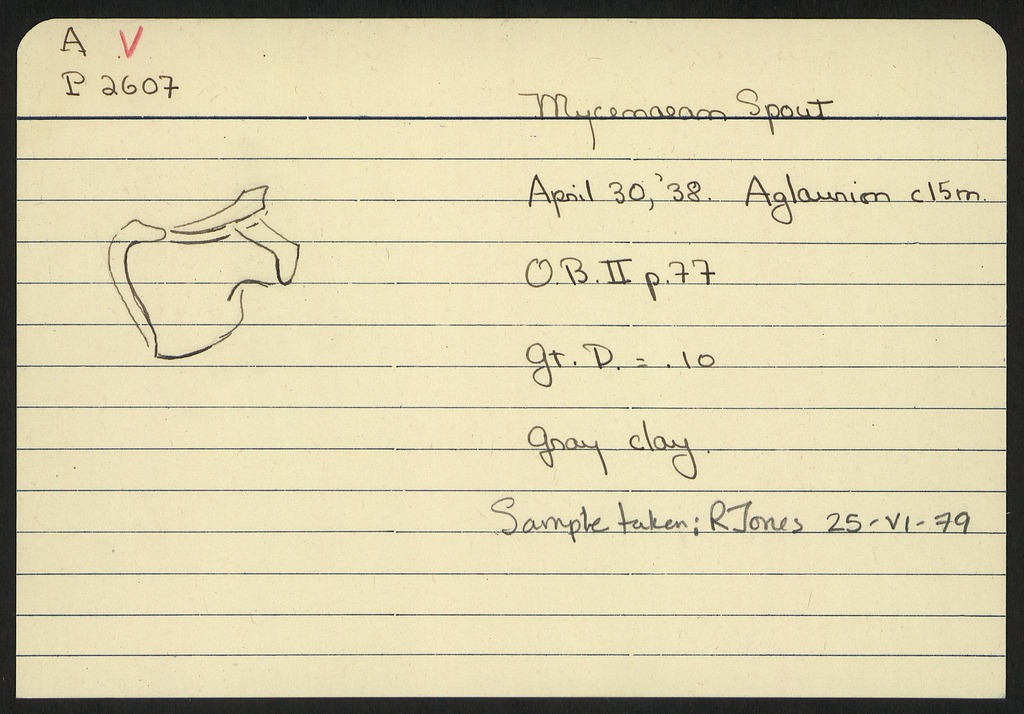 A V
P 2607
Mycenaean Spout
April 30, '38. Aglaurion c15m.
O.B. II p.77
gr. D. = .10
Gray clay.
Sample taken: R Jones 25-VI-79